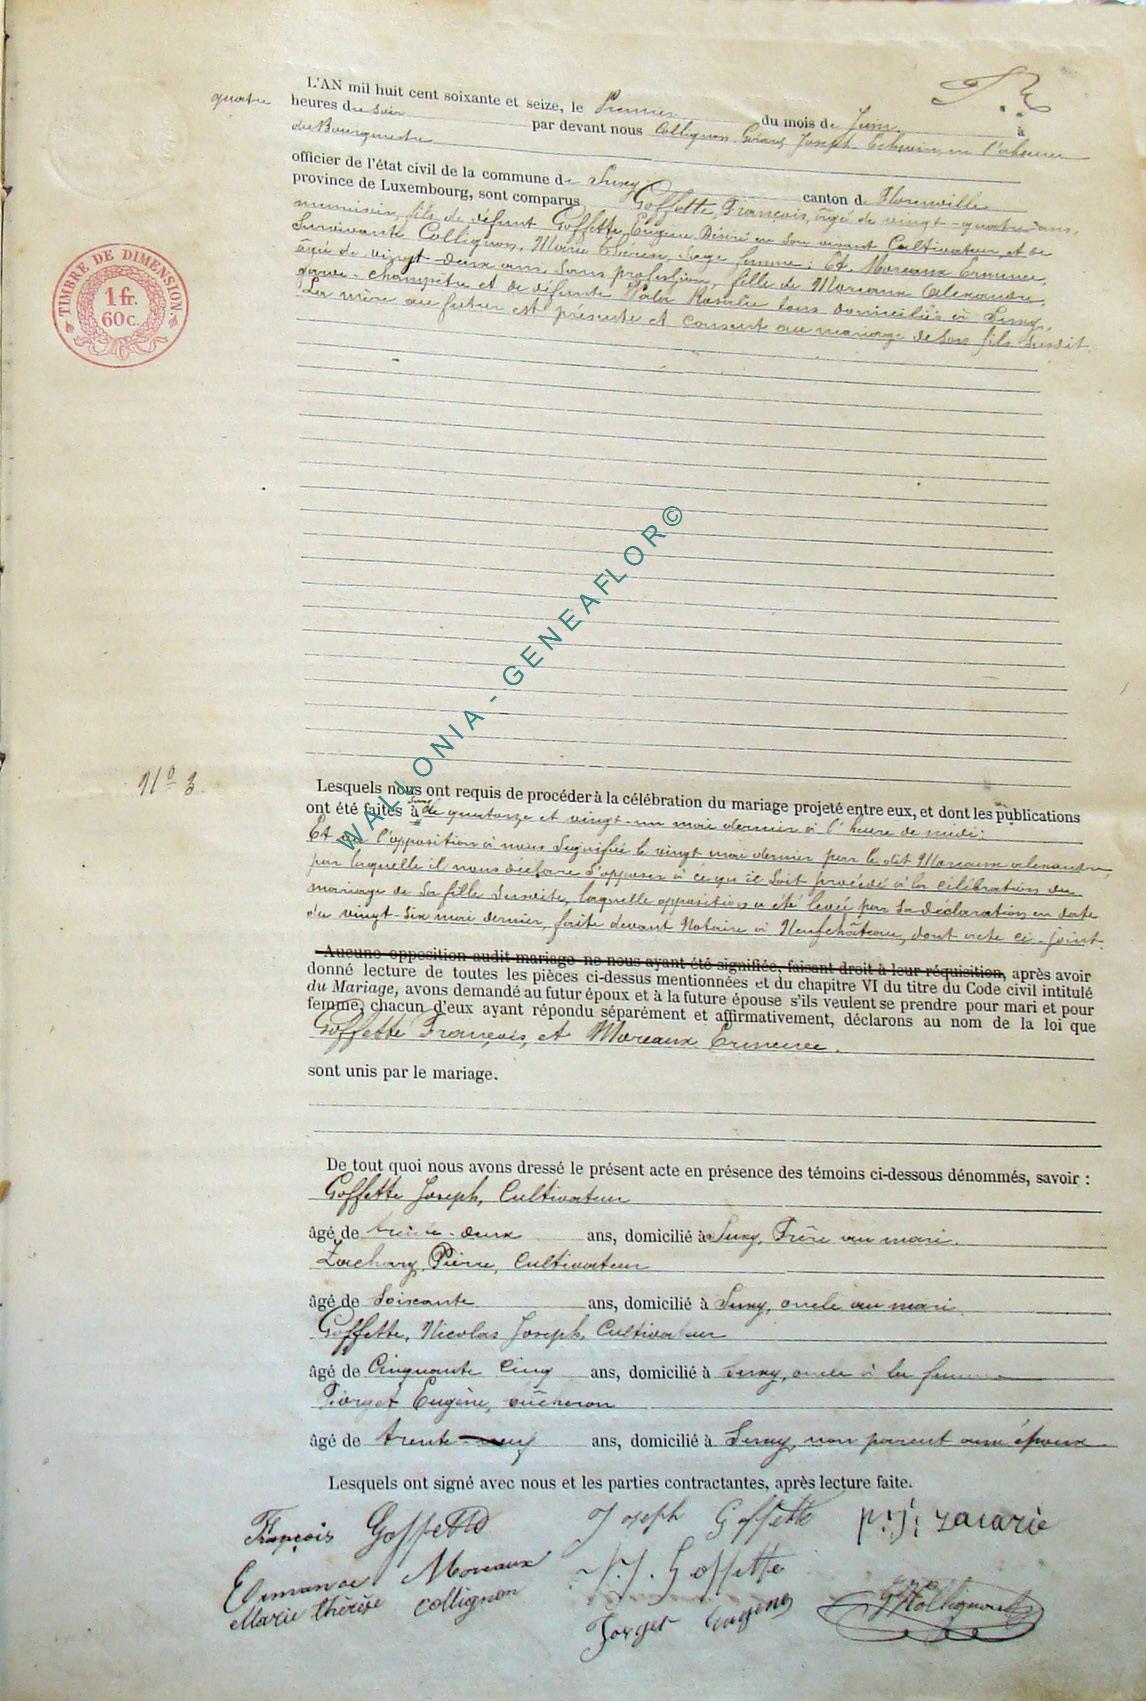 L'AN mil huit cent soixante et seize, le Premier du mois de Juin à
quatre heures du soir par devant nous Collignon Gérard Joseph Echevin, en l'absence
du Bourgmestre
officier de l'état civil de la commune de Suxy canton de Florenville
province de Luxembourg, sont comparus Goffette, François, âgé de vingt-quatre ans,
fils de défunt Goffette, Eugène Désiré en son vivant Cultivateur, et de
Survivante Collignon, Marie Thérèse, Sage femme; Et Moreaux Ermence,
âgée de vingt-deux ans, sans profession, fille de Moreaux Alexandre,
garde-champêtre et de défunte Rosalie tous domiciliés à Suxy.
La mère du futur est présente et consent au mariage de son fils susdit.
TIMBRE DE DIMENSION
1 fr.
60 c.
WALLONIA - GENEAFLOR©
N° 3
Lesquels nous ont requis de procéder à la célébration du mariage projeté entre eux, et dont les publications
ont été faites à Suxy le quatorze et vingt-un mai dernier à l'heure de midi;
Et l'opposition à nous signifiée le vingt mai dernier par le dit Moreaux Alexandre,
par laquelle il nous déclare s'opposer à ce qu'il soit procédé à la célébration du
mariage de sa fille susdite, laquelle opposition a été levée par sa déclaration en date
du vingt-six mai dernier, faite devant Notaire à Neufchâteau, dont acte ci-joint.
Aucune opposition audit mariage ne nous ayant été signifiée, faisant droit à leur réquisition, après avoir
donné lecture de toutes les pièces ci-dessus mentionnées et du chapitre VI du titre du Code civil intitulé
du Mariage, avons demandé au futur époux et à la future épouse s'ils veulent se prendre pour mari et pour
femme, chacun d'eux ayant répondu séparément et affirmativement, déclarons au nom de la loi que
Goffette François, et Moreaux Ermence.
sont unis par le mariage.
De tout quoi nous avons dressé le présent acte en présence des témoins ci-dessous dénommés, savoir :
Goffette Joseph, Cultivateur
âgé de trente-deux ans, domicilié à Suxy, Frère au mari.
Zachary, Pierre, Cultivateur
âgé de Soixante ans, domicilié à Suxy, oncle au mari
Goffette, Nicolas Joseph, Cultivateur
âgé de Cinquante Cinq ans, domicilié à Suxy, oncle à la femme
Forget Eugène, bûcheron
âgé de trente-neuf ans, domicilié à Suxy, non parent aux époux
Lesquels ont signé avec nous et les parties contractantes, après lecture faite.
François Goffette Joseph Goffette p:j: zacarie
Ermance Moreaux N.J. Goffette
Marie thérèse collignon Forget Eugène GJCollignon